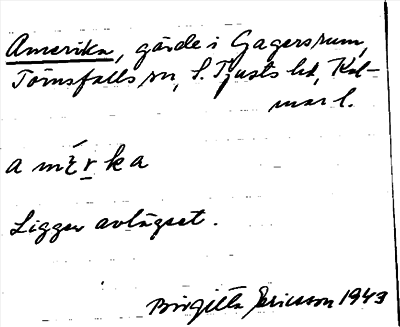 Amerika, gärde i Gagersrum,
Törnsfalls sn, S. Tjusts hd, Kal-
mar l.
a mérka
Ligger avlägset.
Birgitta Ericsson 1943